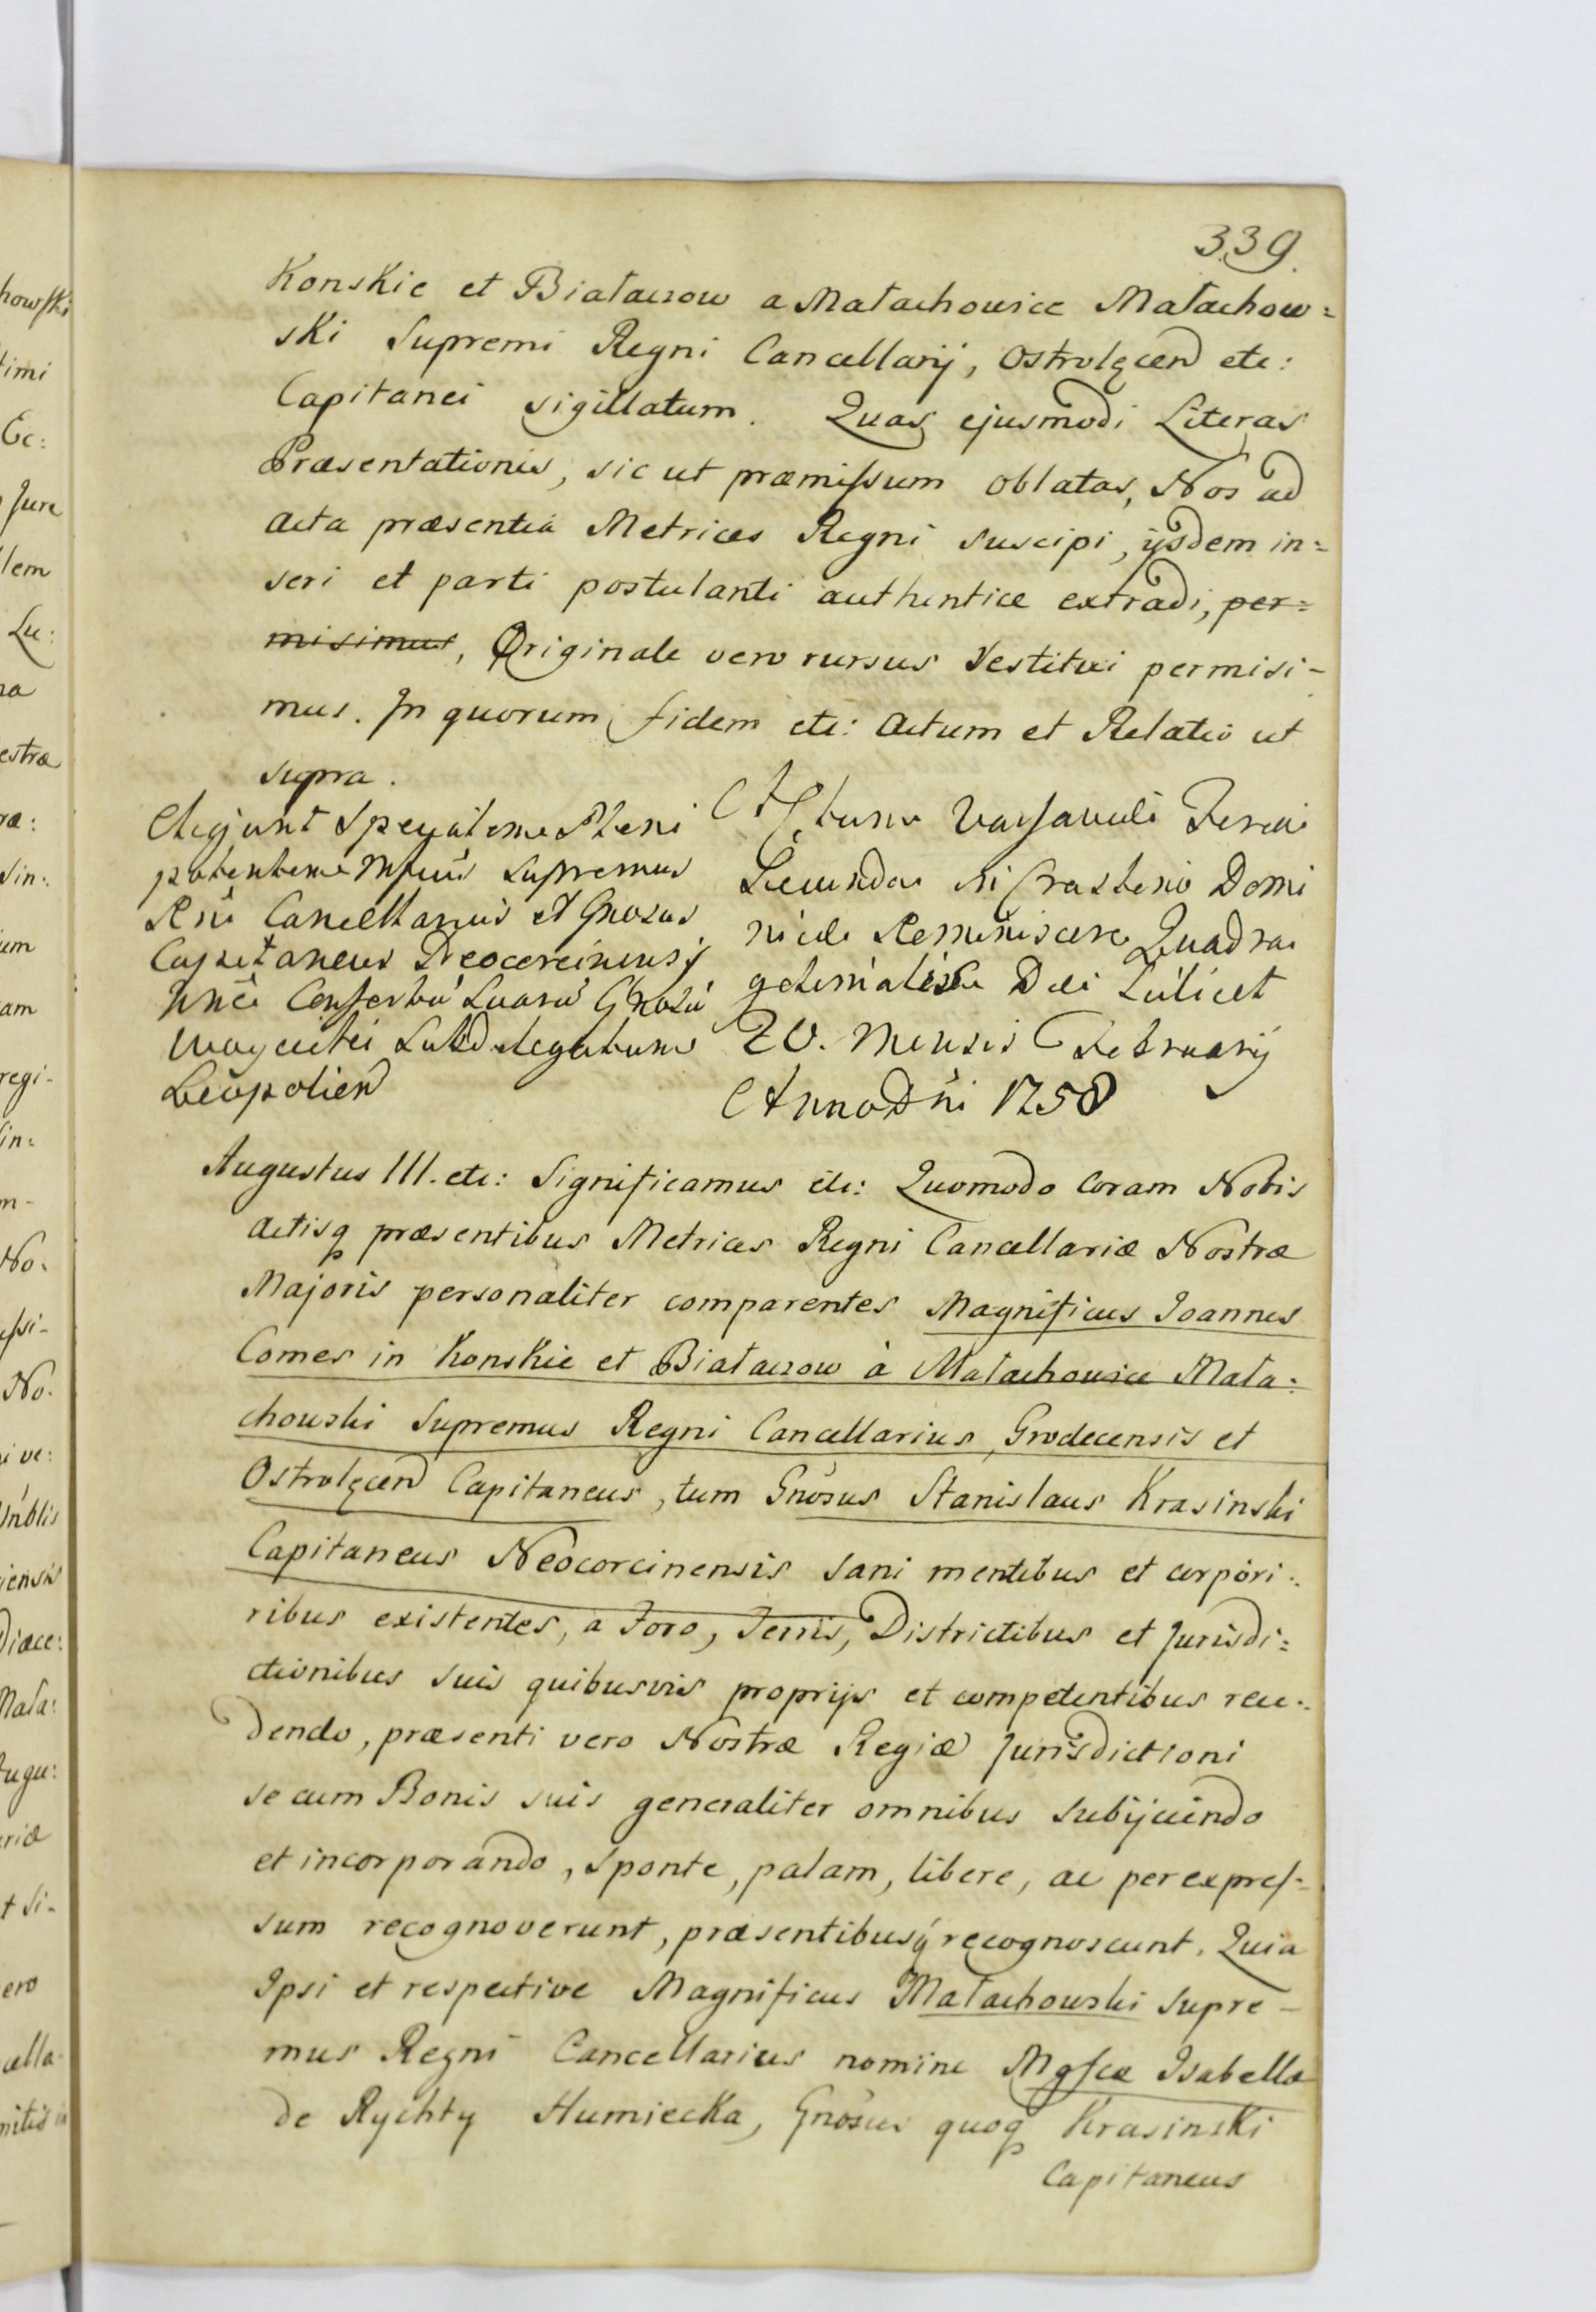 339.
Konskie et Białaczow a Małachowice Małachow=
ski Supremi Regni Cancellarij, Ostrolęcen etc:
Capitanei sigillatum. Quas ejusmodi Literas
Præsentationis, sic ut præmissum oblatas, Nos ad
Acta præsentia Metrices Regni suscipi, ijsdem in=
seri et parti postulanti authentice extradi, per=
misimus, Originale vero rursus restitui permisi-
mus. In quorum fidem etc: Actum et Relatio ut
supra.
Spe Pleni
potentem Mfcus Supremus
Rni Cancellarius et Gnosus
Capitaneus Neocorcinensis
Gnosū
Subdelegatum
Leopolien
Actum Varsaviæ Feria
Secunda in Crastino Domi
nicæ Reminiscere Quadra
gesimalis Die Scilicet
20. Mensis Februarij
Anno Dni 1758
Augustus III. etc: Significamus etc: Quomodo Coram Nobis
Actisq præsentibus Metrices Regni Cancellariæ Nostræ
Majoris personaliter comparentes Magnificus Joannes
Comes in Konskie et Białaczow à Małachowice Mała=
chowski Supremus Regni Cancellarius, Grodecensis et
Ostrolęcen Capitaneus, tum Gnosus Stanislaus Krasinski
Capitaneus Neocorcinensis sani mentibus et corpori=
ribus existentes, a Foro, Terris, Districtibus et Jurisdi=
ctionibus suis quibusvis proprijs et competentibus rece=
dendo, præsenti vero Nostræ Regiæ Jurisdictioni
se cum Bonis suis generaliter omnibus subijciendo
et incorporando, sponte, palam, libere, ac per expres=
sum recognoverunt, præsentibusq recognoscunt. Quia
Ipsi et respective Magnificus Małachowski Supre-
mus Regni Cancellarius nomine Mgfcæ Isabellæ
de Rychty Humiecka, Gnosus quoq Krasinski
Capitaneus